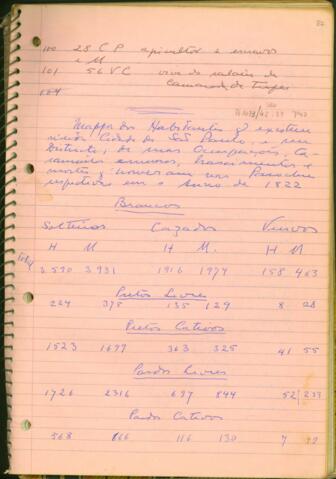 100 28 C P apicultor e
e M
101 56 V C vive de
Camarada de Tropas
104
Mappa dos Habitantes q existem
Cidade de São Paulo, e seu
Districto, de suas Occupações, Ca
samentos annuaes, Nascimentos e
mortes q houveram nas Parochias
respectivas em o Anno de 1822
Brancos
Solteiros Cazados Viuvos
H M H M. H M
Total 3590 3931 1916 1974 158 463
Pretos Livres
224 378 135 129 8 28
Pretos Cativos
1523 1697 363 325 41 55
Pardos Livres
1726 2316 697 844 52 233
Pardos Cativos
568 666 116 130 7